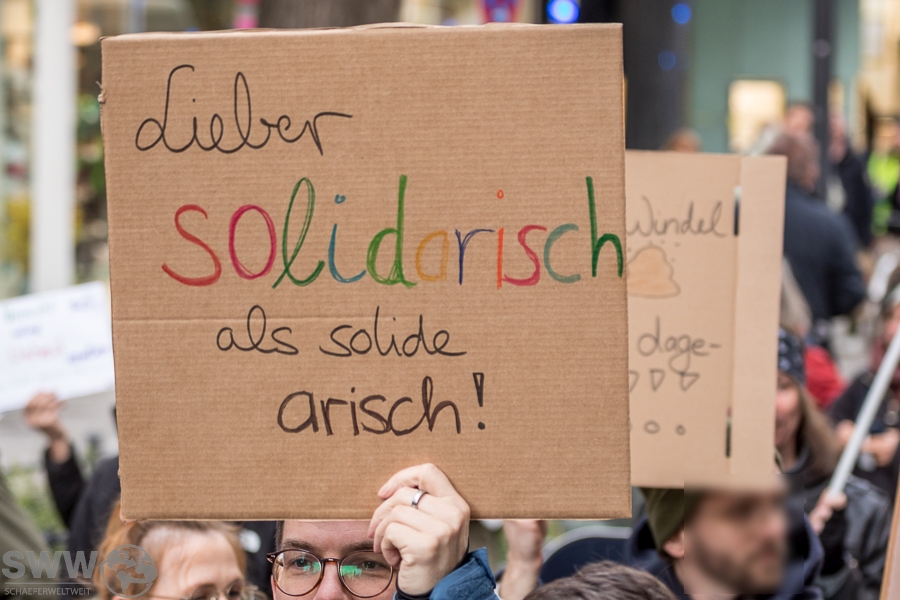 Lieber
solidarisch
als solide
arisch!
Windel
dage-
SWW
SCHAEFERWELTWEIT